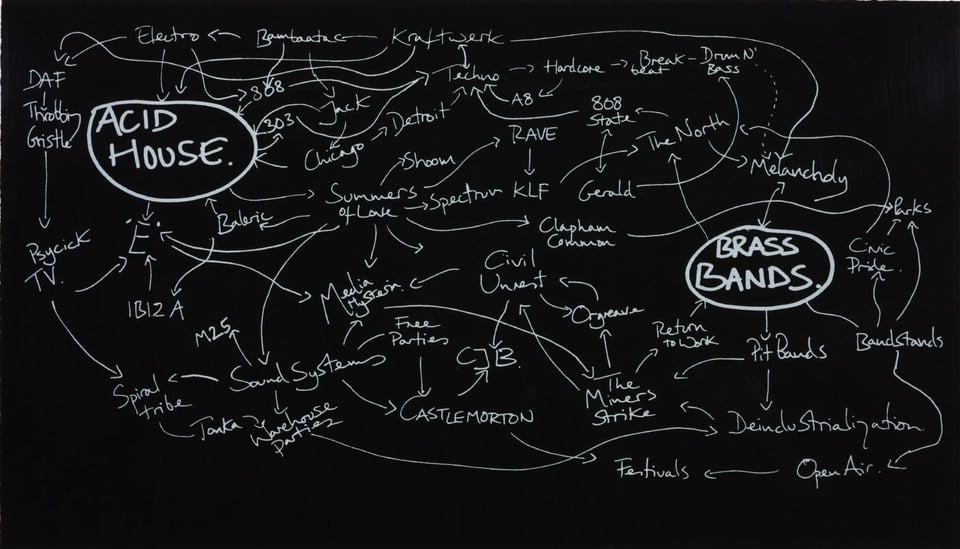 Electro
Bambaataa
Kraftwerk
DAF
808
Techno
Hardcore
Break
beat
Drum N'
Bass
Throbbing
Gristle
ACID
HOUSE.
303
Jack
A8
808
State
Detroit
RAVE
The North
Chicago
Shoom
Melancholy
Summers
of Love
Spectrum
KLF
Gerald
Parks
Baleric
Clapham
Common
'E'.
BRASS
BANDS.
Civic
Pride.
Psycick
TV.
Civil
Unrest
IBIZA
Media
Hysteria.
Orgreave
M25
Free
Parties
Return
to Work
Bandstands
CJB.
Pit Bands
Sound Systems
Spiral
tribe
The
Miners
Strike
CASTLEMORTON
Tonka
Warehouse
Parties
Deindustrialization
Festivals
Open Air.